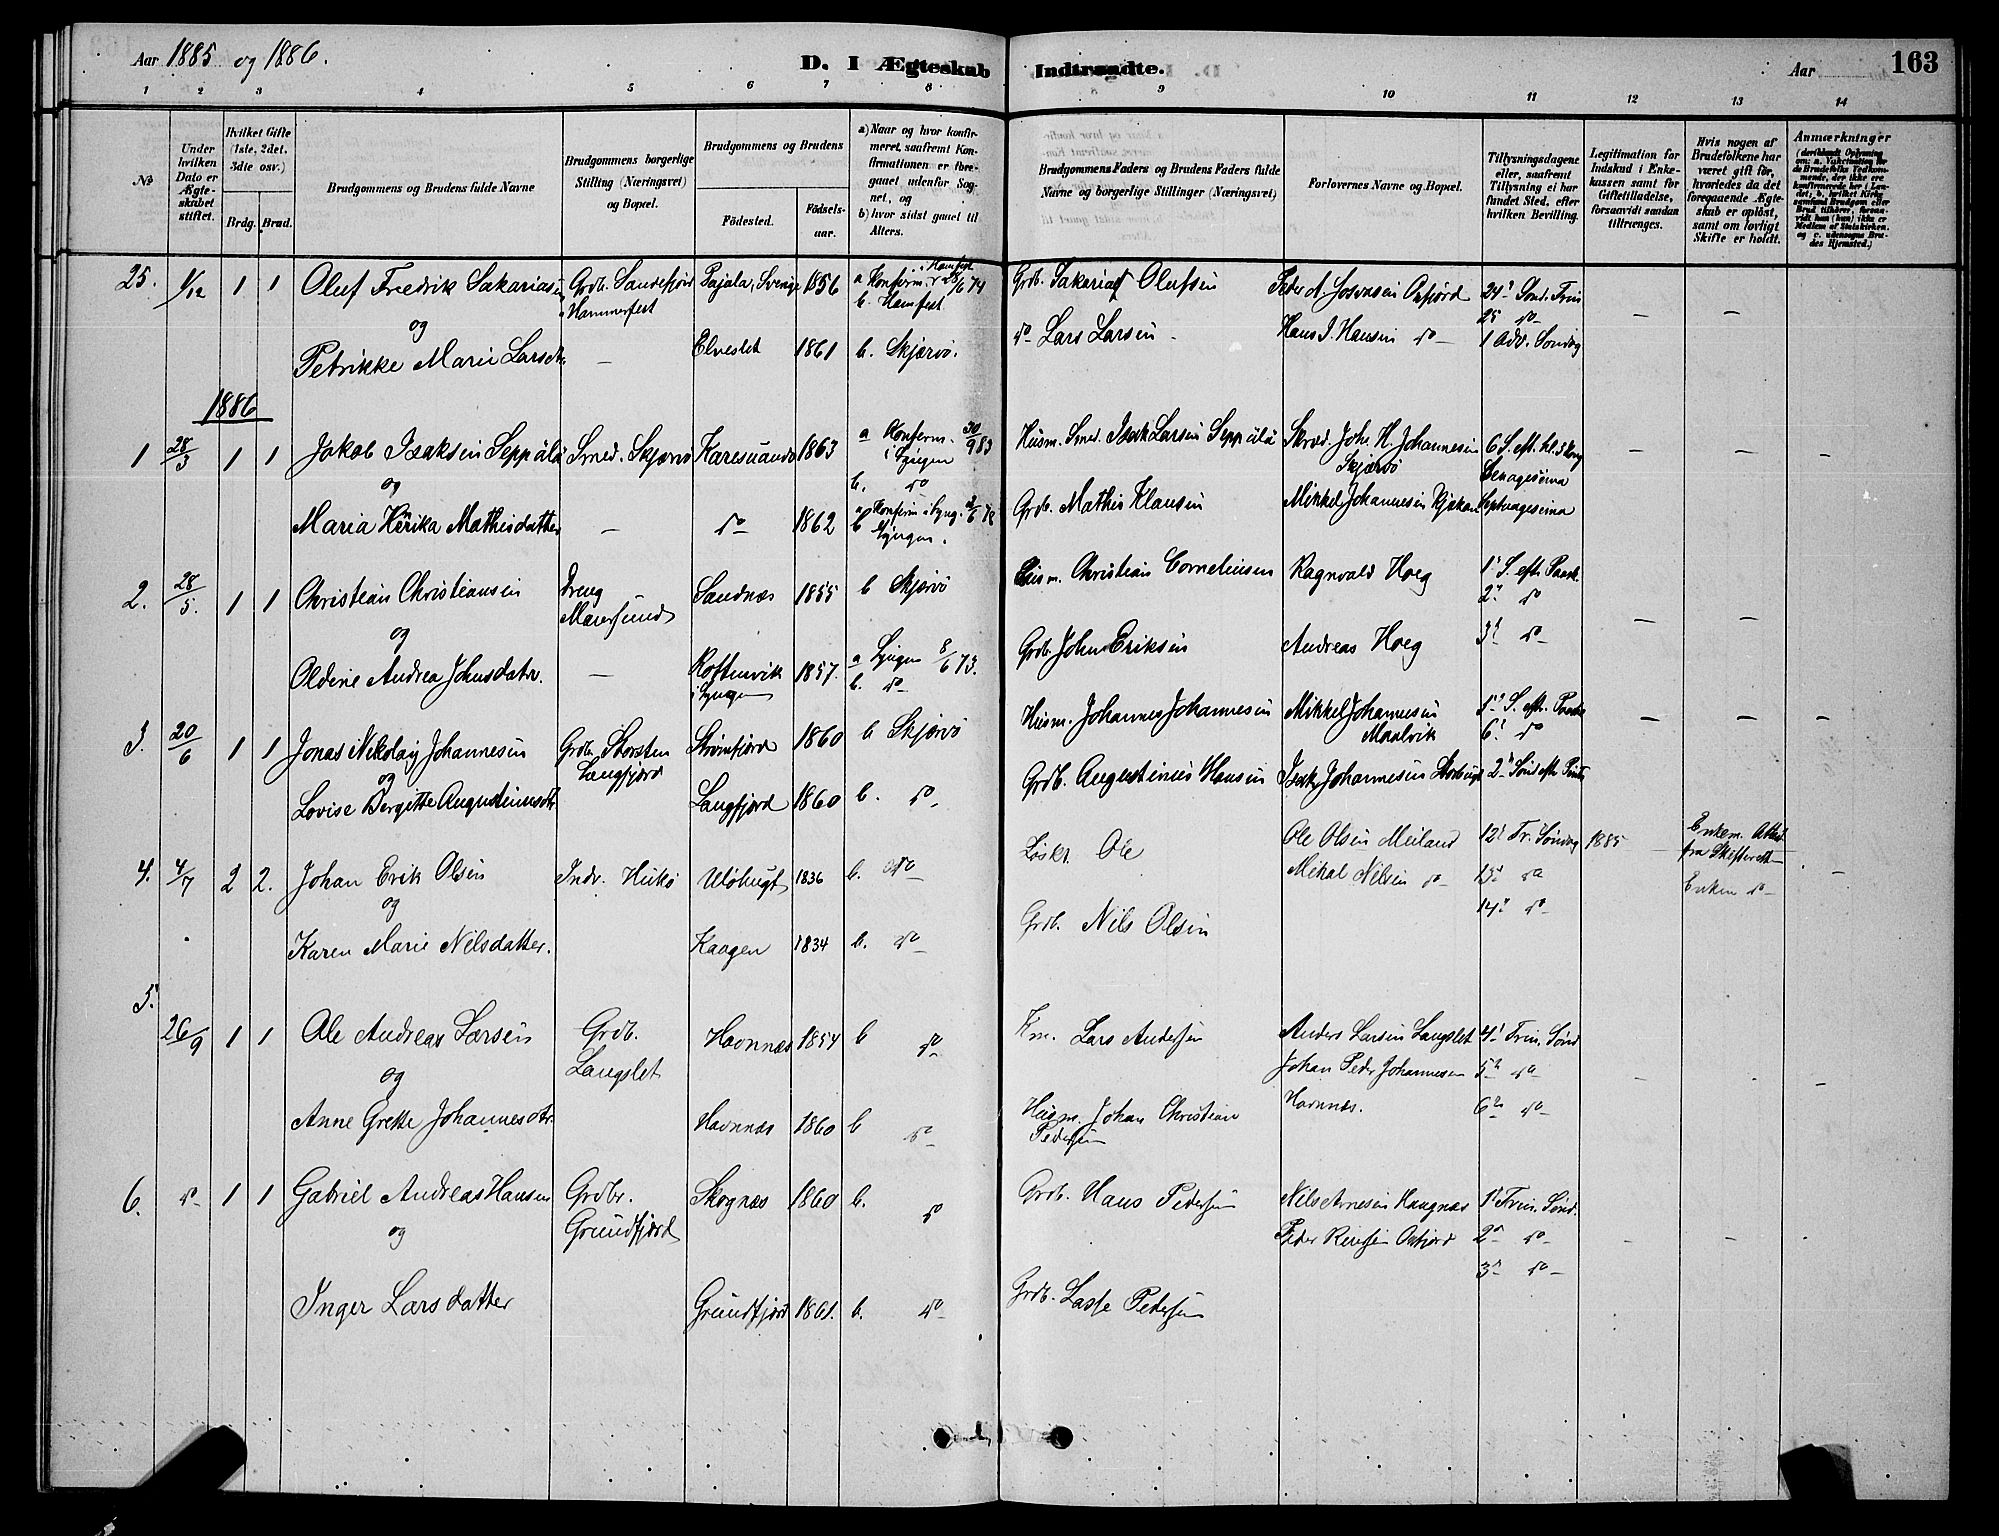 Aar 1885 og 1886.
D. I Ægteskab Indtraadte.
Aar
163
1 2 3 4 5 6 7 8 9 10 11 12 13 14
No
Under hvilken Dato er Ægteskabet stiftet.
Hvilket Gifte (1ste, 2det, 3die osv.)
Brdg. Brud.
Brudgommens og Brudens fulde Navne
Brudgommens borgerlige Stilling (Næringsvei) og Bopæl.
Brudgommens og Brudens
Födested.
Födselsaar.
a) Naar og hvor konfirmeret, saafremt Konfirmationen er foregaaet udenfor Sognet, og
b) hvor sidst gaaet til Alters.
Brudgommens Faders og Brudens Faders fulde Navne og borgerlige Stillinger (Næringsvei)
Forlovernes Navne og Bopæl.
Tillysningsdagene eller, saafremt Tillysning ei har fundet Sted, efter hvilken Bevilling.
Legitimation for Indskud i Enkekassen samt for Giftetilladelse, forsaavidt saadan tiltrænges.
Hvis nogen af Brudefolkene har været gift før, hvorledes da det foregaaende Ægteskab er opløst, samt om lovligt Skifte er holdt.
Anmærkninger
25. 1/12 1 1 Oluf Fredrik Sakariasen Grdb. Sandefjord Pajala, Sverige 1856 a Konferm. i Hamfest 28/6 74 Grb. Sakarias Olufsen Peder A. Josvasen Oxfjord 24d Sønd. Trin
Hammerfest b. Hamfest 25 do — —
og do Lars Larsen Hans J. Hansen do 1 Adv. Søndag
Petrikke Marie Larsdtr. — Elveslet 1861 b. Skjærvö.
1886
1 28/3 1 1 Jakob Isaksen Seppälä Smed. Skjærvö Karesuando 1863 a Konferm. 30/9 83 Husm. Smed. Isak Larsen Seppälä Skræd. Joh. H. Johannesen 6 S. eft. hl. 3 Kong
i Lyngen Skjærvö — — —
og b. do
Maria Henrika Mathisdatter — do 1862 a Konferm i Lyng. Grdb. Mathis Klausen Mikkel Johannesen Septuagesima
b Lyngen.
2. 28/5. 1 1 Christian Christiansen Dreng Sandnæs 1855 b Skjærvö Husm. Christian Corneliusen Ragnvald Hoeg 1' S. eft. Paask.
Maursund 2' do
og Grdb John Eriksen Andreas Hoeg 3' do — —
Oldine Andrea Johnsdatr. — Rottenvik 1857. a Lyngen 8/6 73.
i Lyngen b. do
3. 20/6 1 1 Jonas Nikolay Johannesen Grdb. Storsten Strømfjord 1860 b Skjærvö Husm. Johannes Johannesen Mikkel Johannesen S. eft. Paaske — — —
og Langfjord Maalvik 6' do
Lovise Bergitte Augustinusdtr Langfjord 1860 b. do Grdb. Augustinus Hansen Isak Johannesen 2' Sønd eft.
4. 4/7 2 2. Johan Erik Olsen Indr. Hukö Ulöbugt 1836 b. do Løskr. Ole Ole Olsen Meiland 12' Tr. Søndag 1885 Enkem. Attest
og Mikal Nilsen do 13' do fra Skifterett
Karen Marie Nilsdatter. Kaagen 1834 b. do Grdb. Nils Olsen 14' do Enken do —
5. 26/9 1 1 Ole Andreas Larsen Grdb. Havnnæs 1854 b do Km. Lars Andersen Anders Larsen Langslet 4' Trin. Sønd
og Langslet Johan Peder Johannesen 5' do — — —
Anne Grethe Johannesdtr. Havnnæs 1860 b do Husm. Johan Christian Havnnæs. 6' do
Pedersen
6. do 1 1 Gabriel Andreas Hansen Grdbr. Skognæs 1860 b. do Grdb. Hans Pedersen Nils Arnesen Haugnæs 1' Trin. Sønd.
og Grundfjord Peder Oxfjord 2' do — —
3' do
Inger Larsdatter Grundfjord 1861. b. do Grdb. Lasse Pedersen